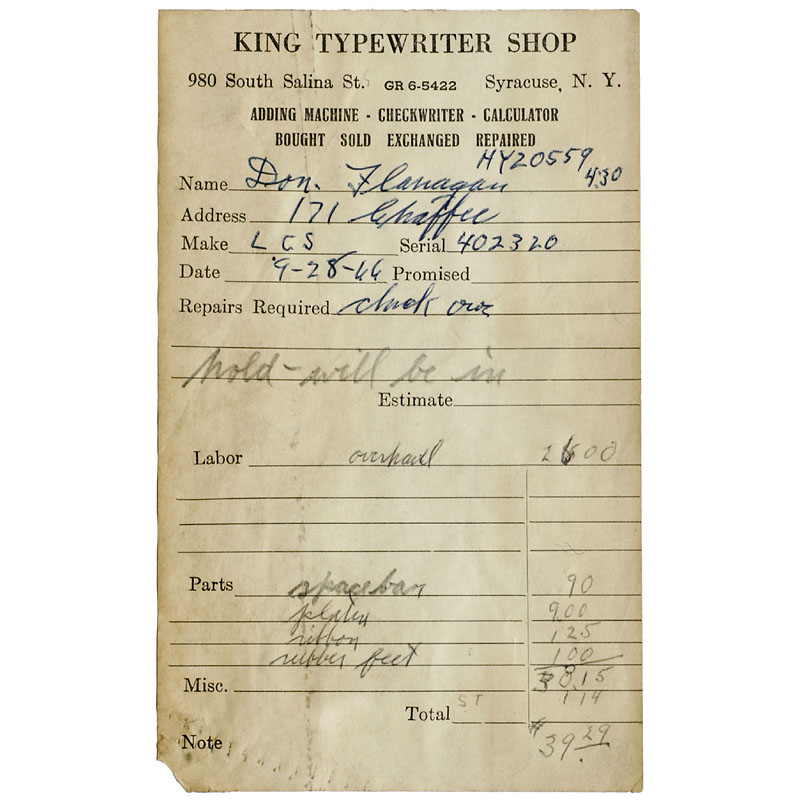 KING TYPEWRITER SHOP
980 South Salina St. GR 6-5422 Syracuse, N. Y.
ADDING MACHINE - CHECKWRITER - CALCULATOR
BOUGHT SOLD EXCHANGED REPAIRED
HY20559
Name Don. Flanagan 4:30
Address 171 Chaffee
Make L C S Serial 402320
Date 9-28-66 Promised
Repairs Required check over
hold - will be in
Estimate
Labor overhaul 2600
Parts spacebar 90
platen 900
ribbon 125
rubber feet 100
3815
Misc. 114
Total ST
Note $39.29